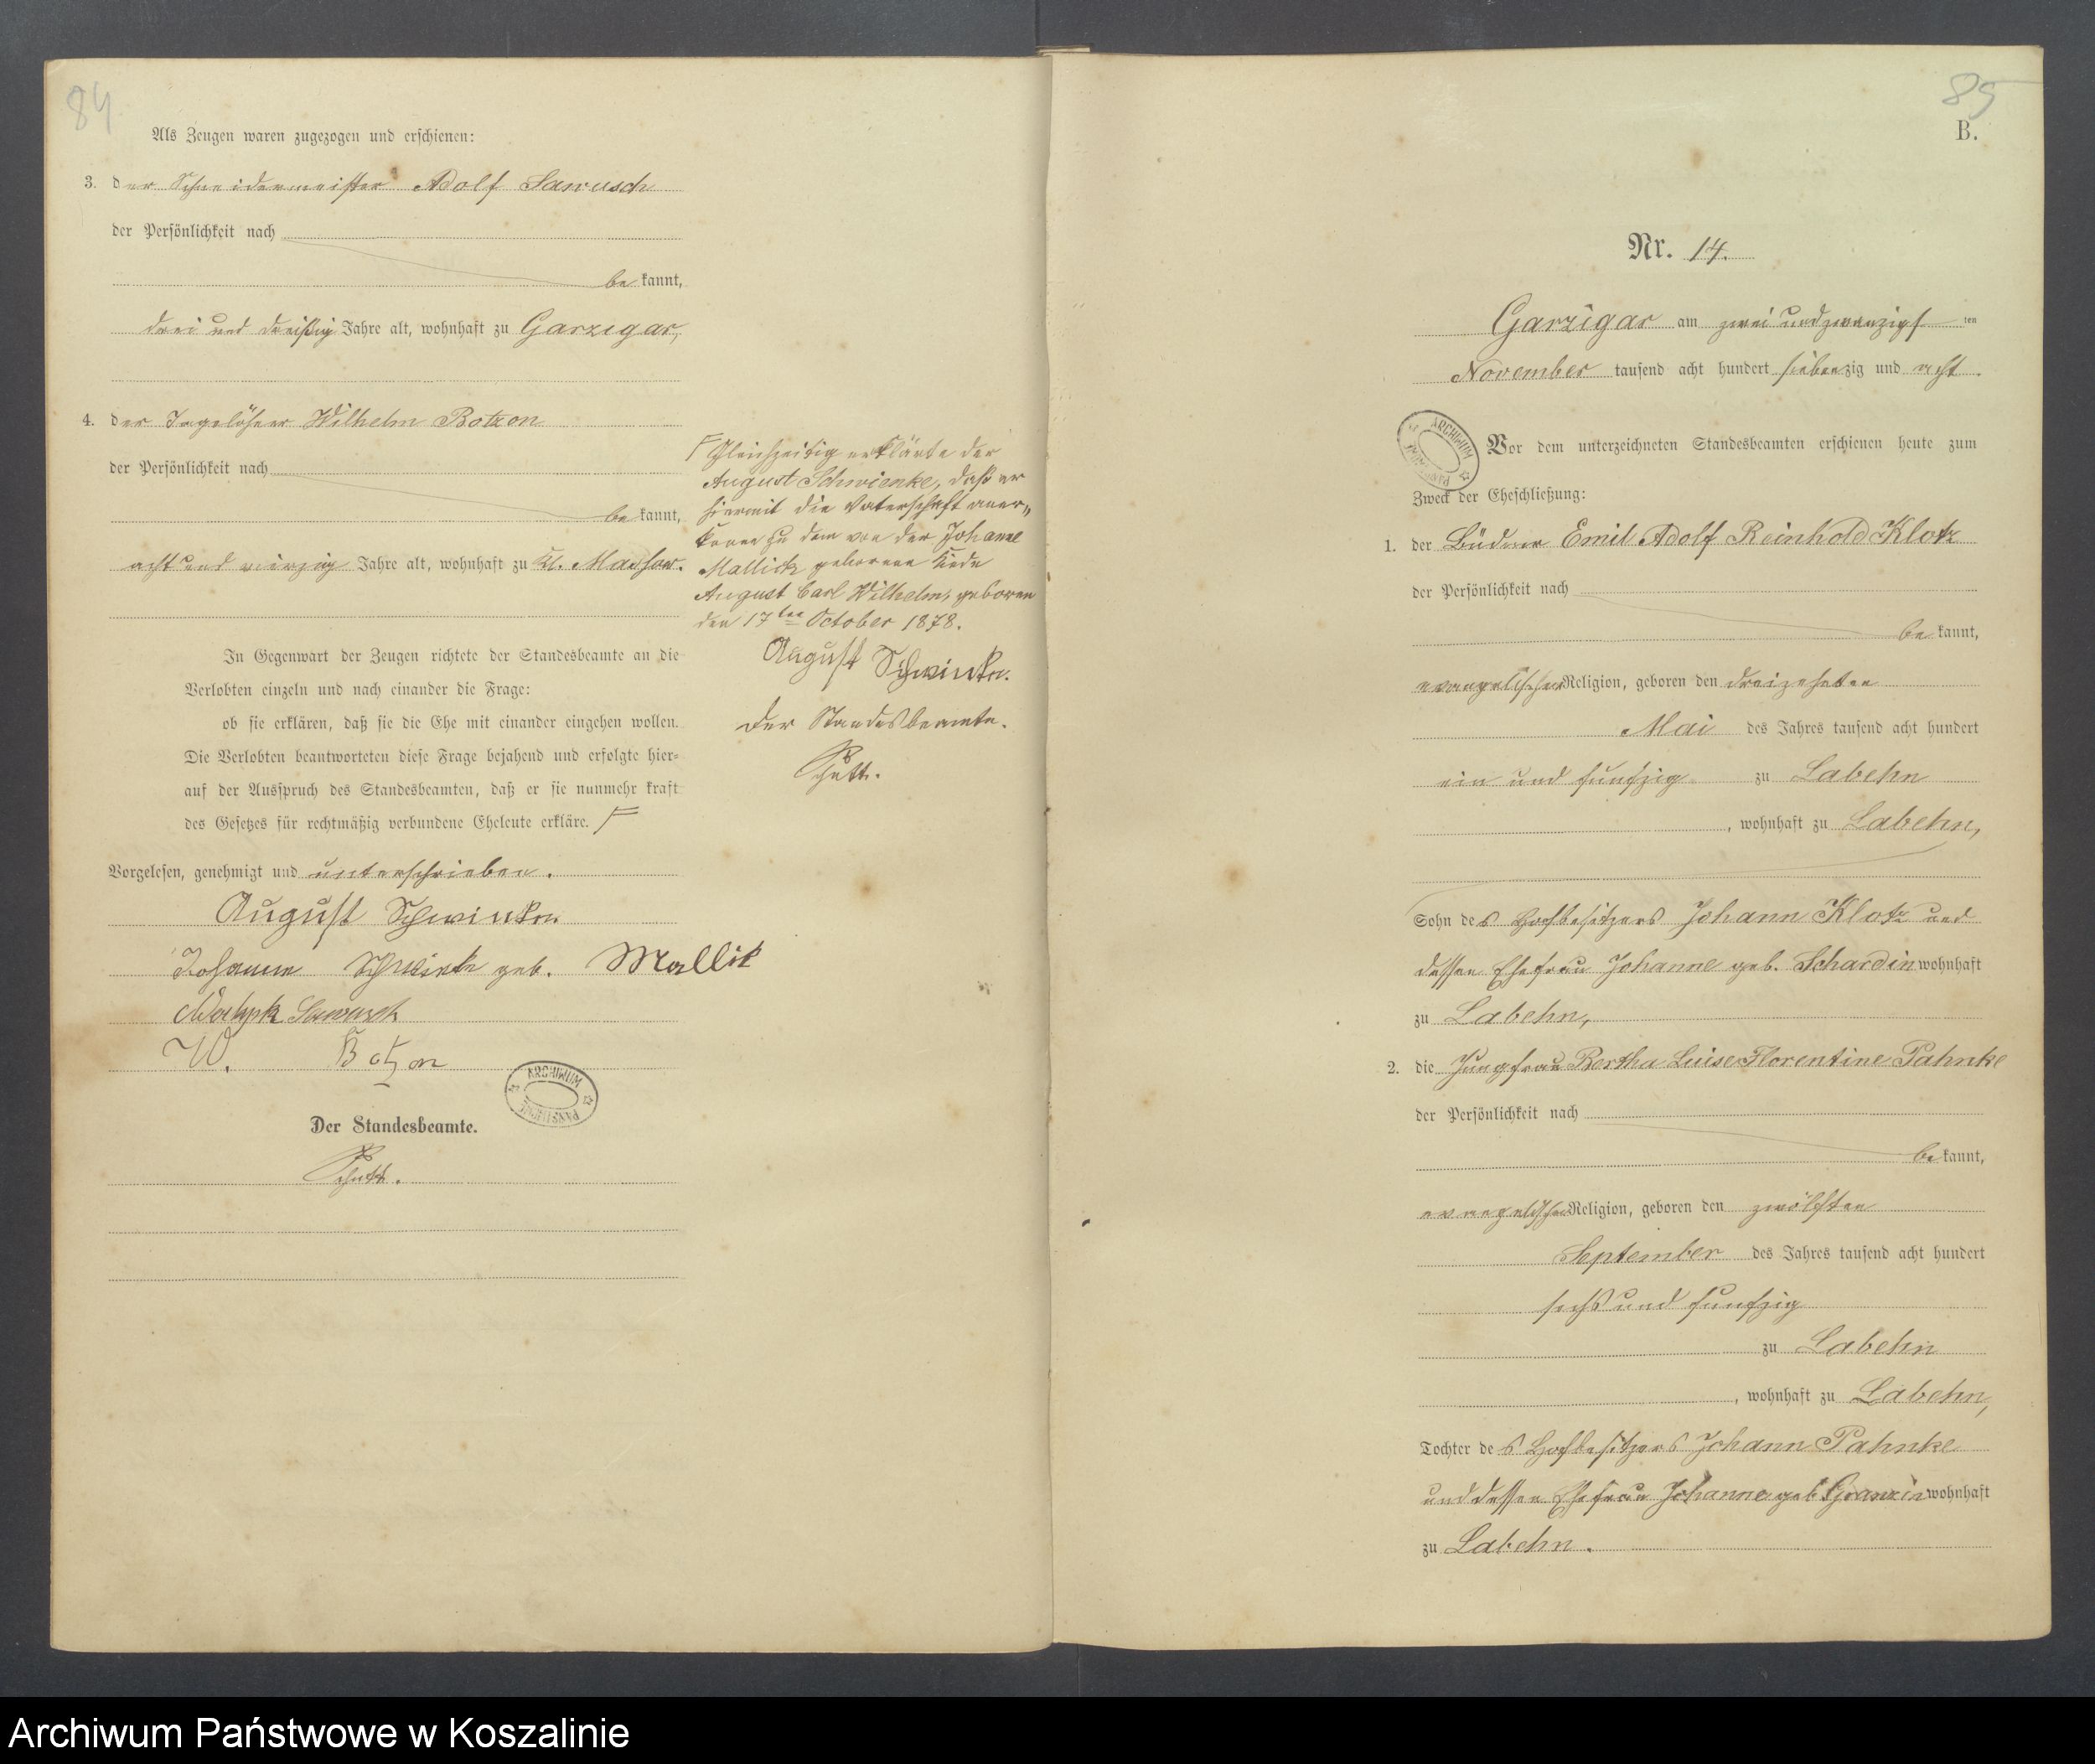 84
Als Zeugen waren zugezogen und erschienen:
3. der Schneidermeister Adolf Sawusch
der Persönlichkeit nach
be kannt,
drei und dreißig Jahre alt, wohnhaft zu Garzigar,
4. der Tagelöhner Wilhelm Botzon
der Persönlichkeit nach
be kannt,
acht und vierzig Jahre alt, wohnhaft zu Kl. Massow.
In Gegenwart der Zeugen richtete der Standesbeamte an die
Verlobten einzeln und nach einander die Frage:
ob sie erklären, daß sie die Ehe mit einander eingehen wollen.
Die Verlobten beantworteten diese Frage bejahend und erfolgte hier=
auf der Ausspruch des Standesbeamten, daß er sie nunmehr kraft
des Gesetzes für rechtmäßig verbundene Eheleute erkläre. F
Vorgelesen, genehmigt und unterschrieben.
August Schwinke
Johanne Schwinke geb. Mallik
Sawusch
W. Botzon
ARCHIWUM PAŃSTWOWE
Der Standesbeamte.
F Gleichzeitig erklärte der
August Schwienke, daß er
hiermit die Vaterschaft aner„
kenne zu dem von der Johanne
Mallick geborenen Kinde
August Carl Wilhelm, geboren
den 17ten October 1878.
August Schwinke.
Der Standesbeamte.
85
B.
Nr. 14.
Garzigar am zwei und zwanzigsten
November tausend acht hundert siebenzig und acht.
ARCHIWUM PAŃSTWOWE
Vor dem unterzeichneten Standesbeamten erschienen heute zum
Zweck der Eheschließung:
1. der Büdner Emil Adolf Reinhold Klotz
der Persönlichkeit nach
be kannt,
evangelischer Religion, geboren den dreizehnten
Mai des Jahres tausend acht hundert
ein und funfzig zu Labehn
, wohnhaft zu Labehn,
Sohn des Hofbesitzers Johann Klotz und
dessen Ehefrau Johanne geb. Schardin wohnhaft
zu Labehn,
2. die Jungfrau Bertha Luise Florentine Pahnke
der Persönlichkeit nach
be kannt,
evangelischer Religion, geboren den zwölften
September des Jahres tausend acht hundert
sechs und funfzig
zu Labehn
, wohnhaft zu Labehn,
Tochter des Hofbesitzers Johann Pahnke
und dessen Ehefrau Johanne geb Granzin wohnhaft
zu Labehn.
Archiwum Państwowe w Koszalinie